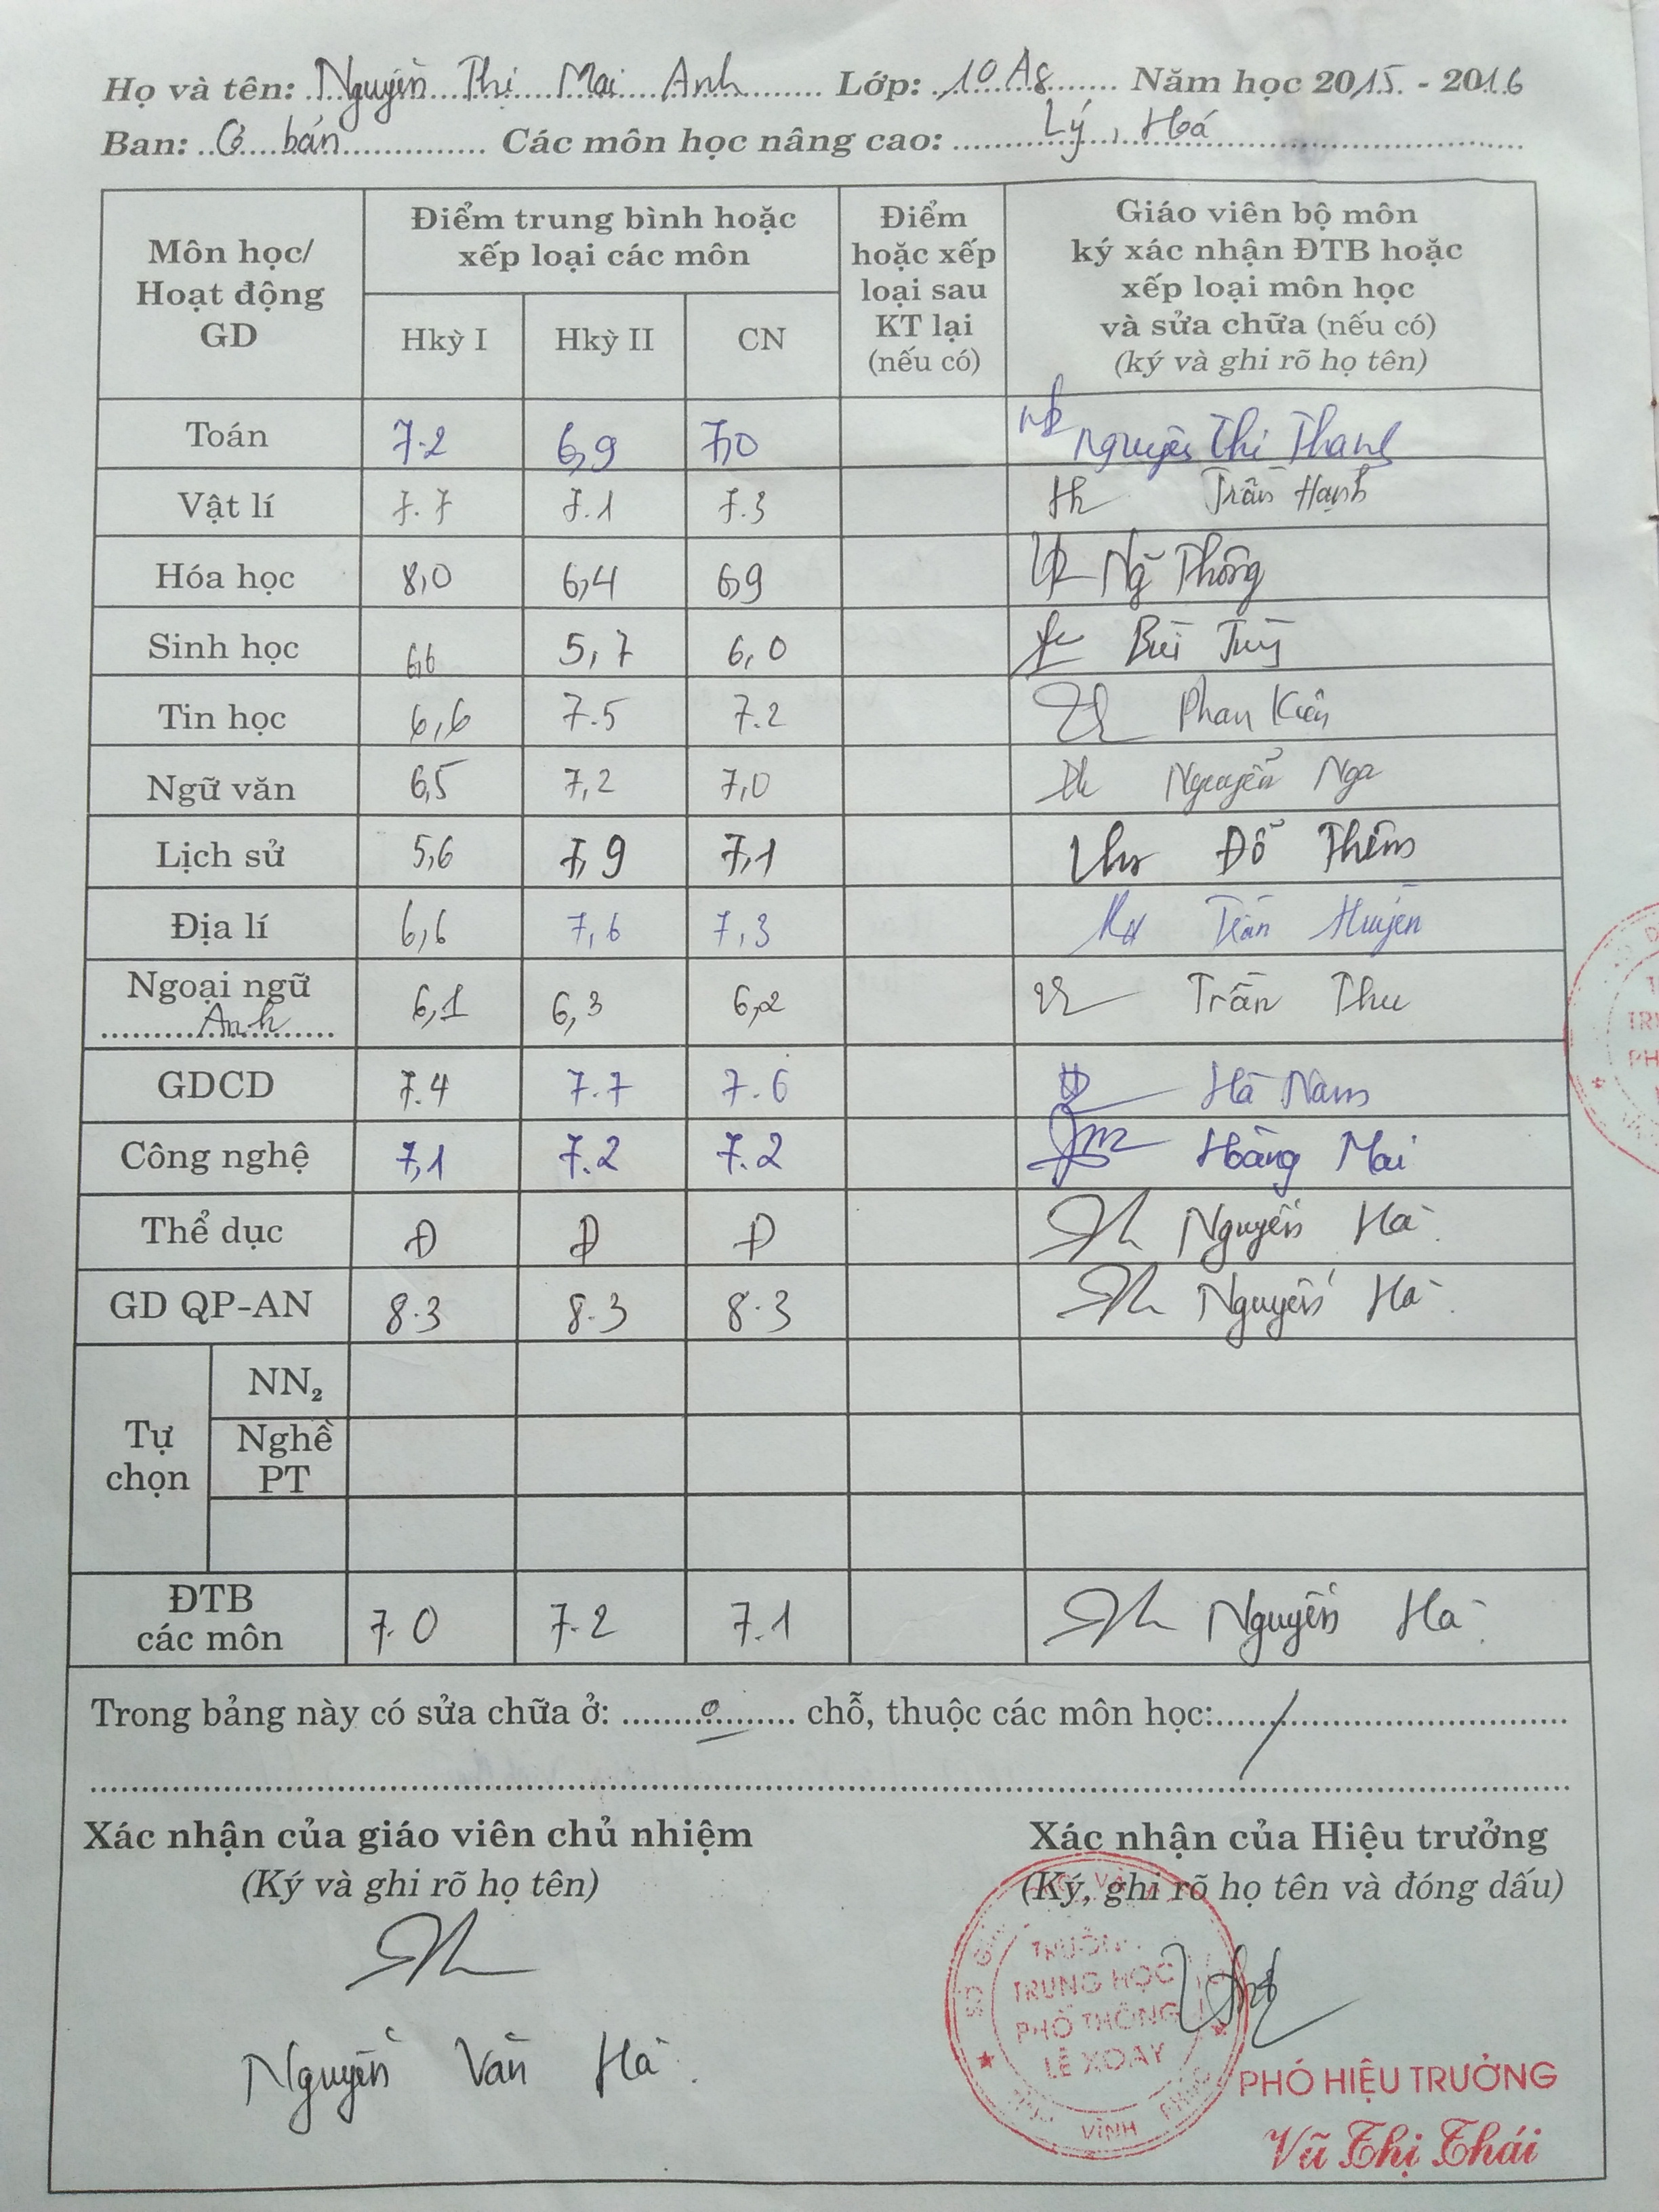 Họ và tên: Nguyễn Thị Mai Anh Lớp: 10A8 Năm học 2015 - 2016
Ban: Cơ bản Các môn học nâng cao: Lý, Hoá
Môn học/ Hoạt động GD
Điểm trung bình hoặc xếp loại các môn
Hkỳ I Hkỳ II CN
Điểm hoặc xếp loại sau KT lại (nếu có)
Giáo viên bộ môn ký xác nhận ĐTB hoặc xếp loại môn học và sửa chữa (nếu có) (ký và ghi rõ họ tên)
Toán 7.2 6,9 7,0 Nguyễn Thị Thanh
Vật lí 7.7 7.1 7.3 Trần Hạnh
Hóa học 8,0 6,4 6,9 Ng Thông
Sinh học 6,6 5,7 6,0 Bùi
Tin học 6,6 7.5 7.2 Phan Kiên
Ngữ văn 6,5 7,2 7,0 Nguyễn Nga
Lịch sử 5,6 7,9 7,1 Đỗ Thêm
Địa lí 6,6 7,6 7,3 Trần Huyền
Ngoại ngữ Anh 6,1 6,3 6,2 Trần Thu
GDCD 7.4 7.7 7.6 Hà Nam
Công nghệ 7,1 7.2 7.2 Hoàng Mai
Thể dục Đ Đ Đ Nguyễn Hà
GD QP-AN 8.3 8.3 8.3 Nguyễn Hà
Tự chọn
NN₂
Nghề PT
ĐTB các môn 7.0 7.2 7.1 Nguyễn Hà
Trong bảng này có sửa chữa ở: 0 chỗ, thuộc các môn học: /
Xác nhận của giáo viên chủ nhiệm Xác nhận của Hiệu trưởng
(Ký và ghi rõ họ tên) (Ký, ghi rõ họ tên và đóng dấu)
TRƯỜNG
TRUNG HỌC
PHỔ THÔNG
LÊ XOAY
VĨNH PHÚC
Nguyễn Văn Hà
PHÓ HIỆU TRƯỞNG
Vũ Thị Thái